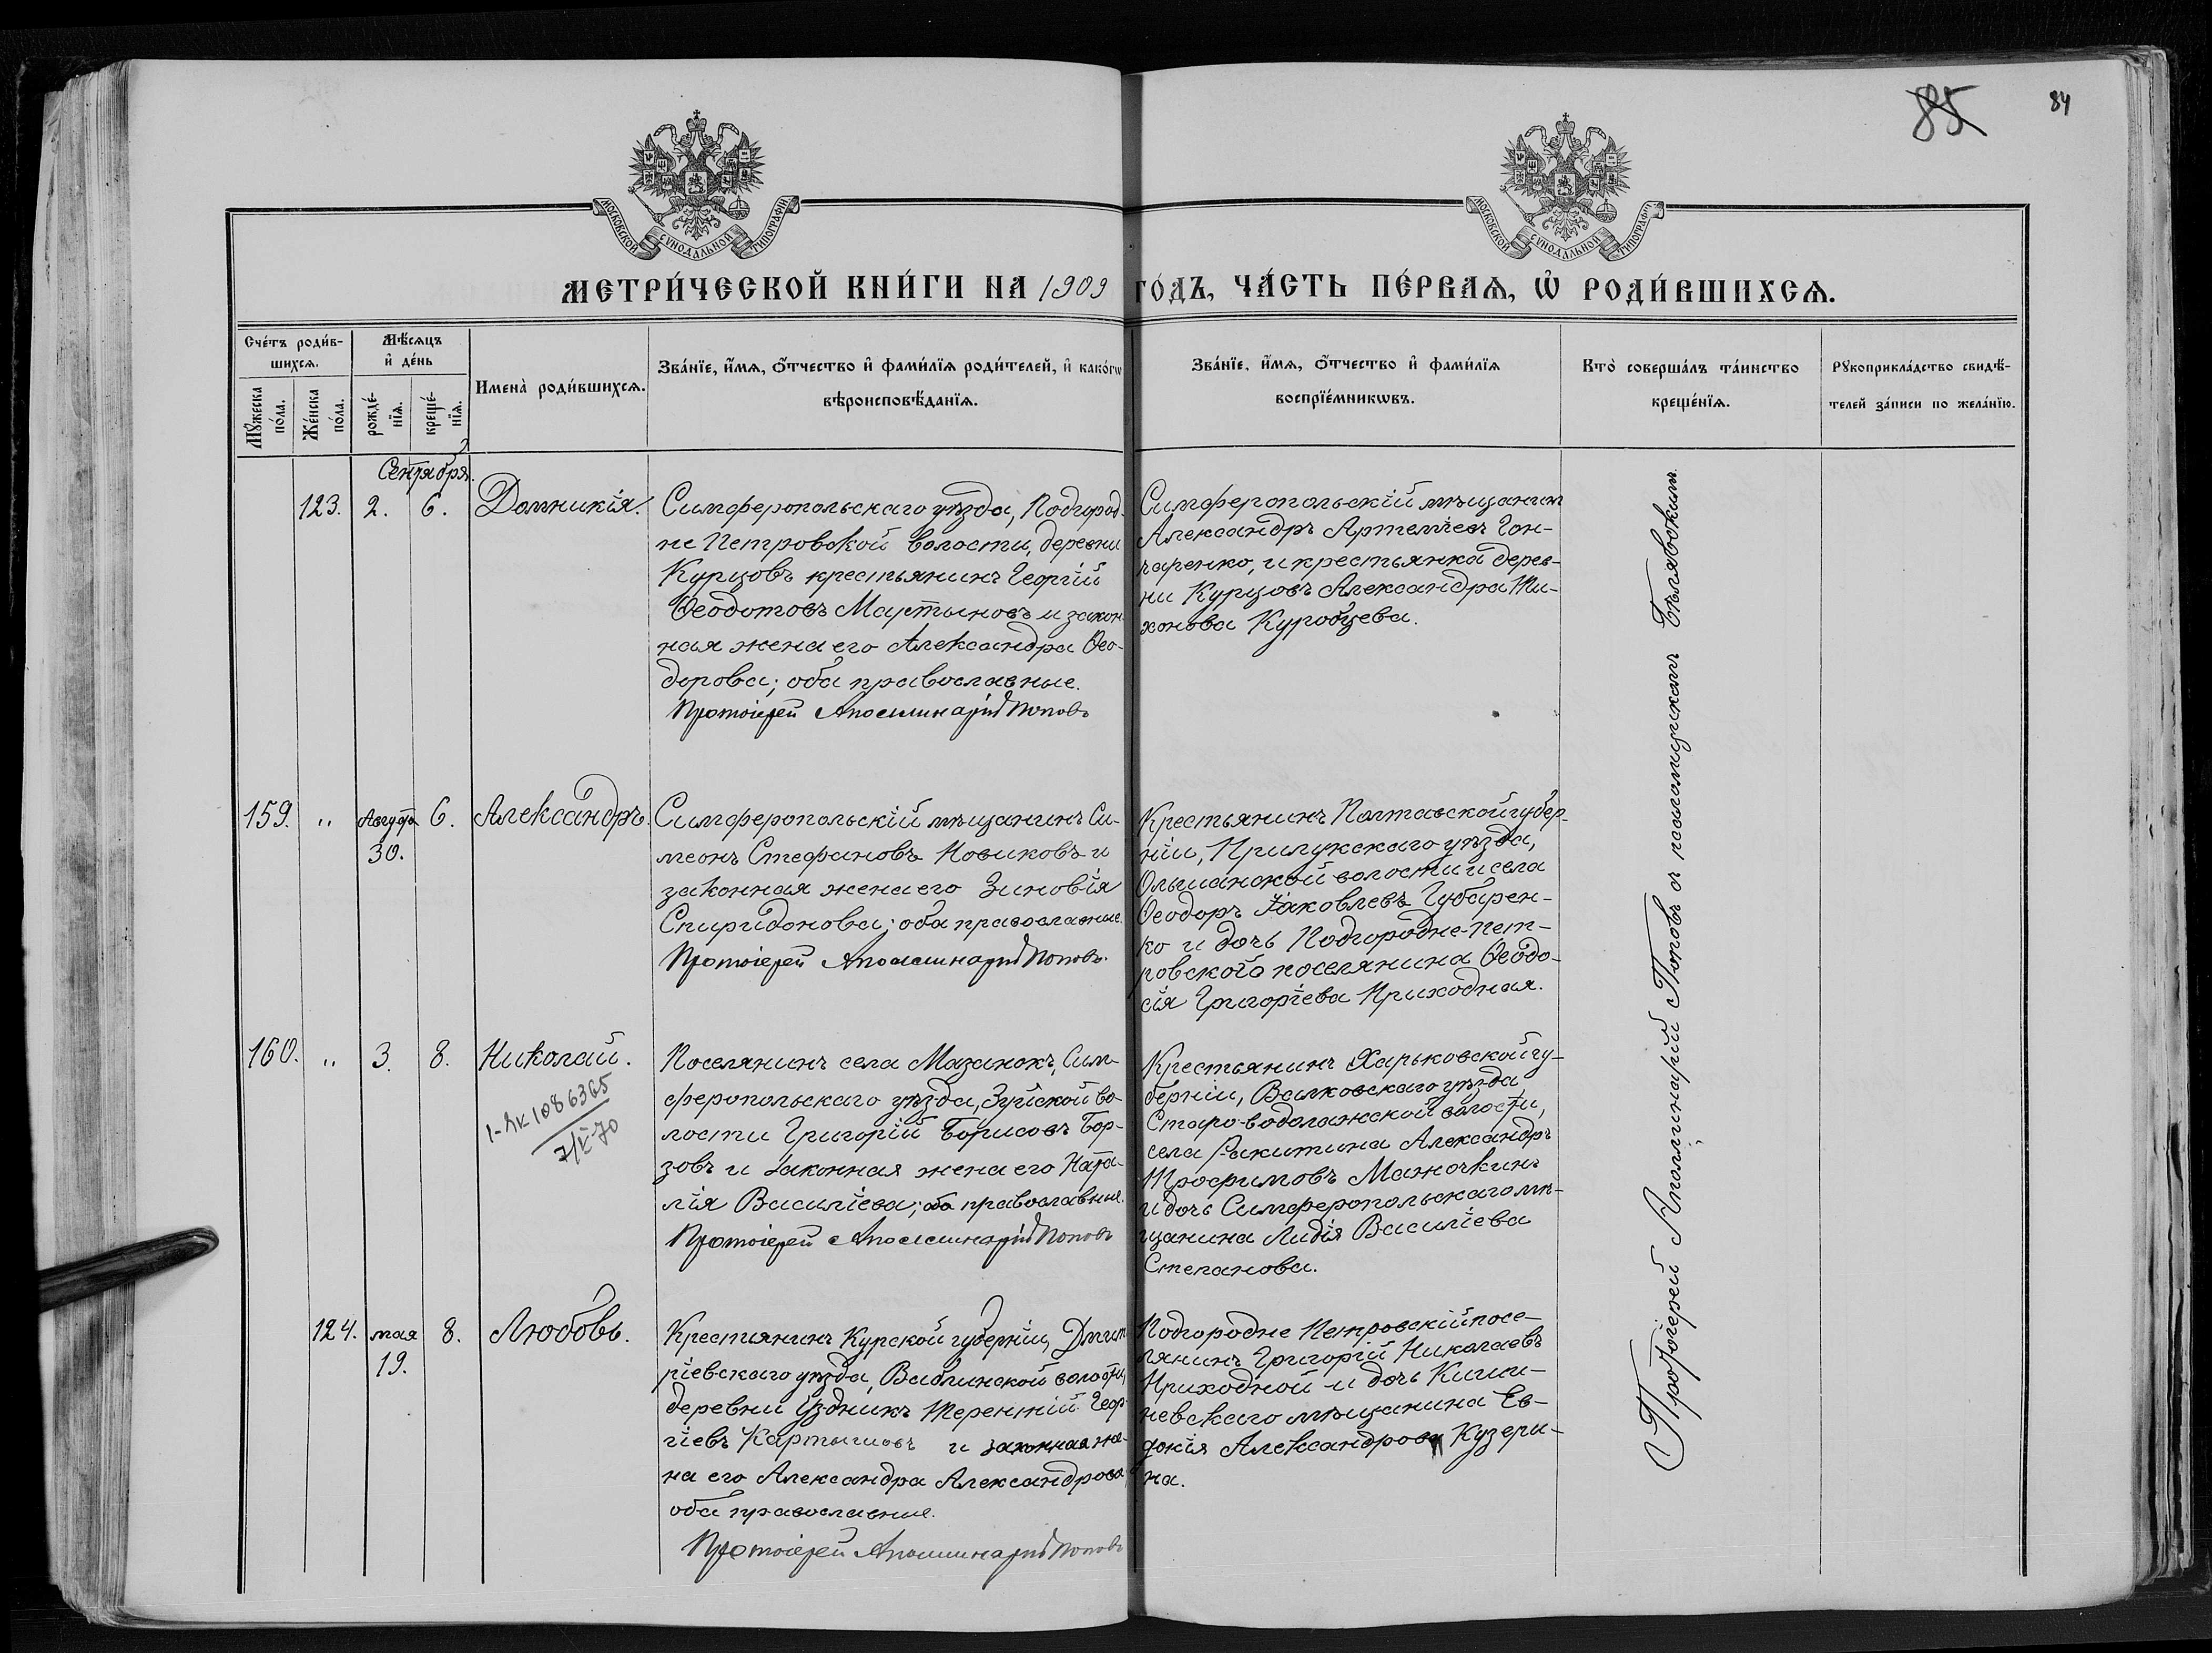 85 84
МОСКОВСКОЙ СѴНОДАЛЬНОЙ ТИПОГРАФІИ
МОСКОВСКОЙ СѴНОДАЛЬНОЙ ТИПОГРАФІИ
МЕТРИ́ЧЕСКОЙ КНИ́ГИ НА 1909 ГО́ДЪ, ЧА́СТЬ ПЕ́РВАѦ, Ѡ РОДИ́ВШИХСѦ.
Сче́тъ роди́в-
шихсѧ.
Мꙋ́жеска
по́ла.
Же́нска
по́ла.
Мѣ́сѧцъ
и҆ де́нь
рожде́-
нїѧ.
креще́-
нїѧ.
Имена̀ роди́вшихсѧ.
Зва́нїе, и҆́мѧ, ѻ҆́тчество и҆ фами́лїѧ роди́телей, и҆ како́гѡ
вѣроисповѣ́данїѧ.
Зва́нїе, и҆́мѧ, ѻ҆́тчество и҆ фами́лїѧ
воспрїе́мникѡвъ.
Кто̀ соверша́лъ та́инство
креще́нїѧ.
Рꙋкоприкла́дство свидѣ́-
телей за́писи по жела́нїю.
Сентября.
123. 2. 6. Домникія.
Симферопольскаго уѣзда, Подгород-
не Петровской волости, деревни
Курцовъ крестьянинъ Георгій
Ѳеодотовъ Мартыновъ и закон-
ная жена его Александра Ѳео-
дорова; оба православные.
Протоіерей Аполлинарій Поповъ
Симферопольскій мѣщанинъ
Александръ Артеміевъ Гон-
чаренко, и крестьянка дерев-
ни Курцовъ Александра Ти-
хонова Куробцева.
159. " Августа 30. 6. Александръ.
Симферопольскій мѣщанинъ Си-
меонъ Стефановъ Новиковъ и
законная жена его Зиновія
Спиридонова; оба православные.
Протоіерей Аполлинарій Поповъ.
Крестьянинъ Полтавской губер-
ніи, Прилукскаго уѣзда,
Ольшанской волости и села
Ѳеодоръ Іаковлевъ Губарен-
ко и дочь Подгородне-Пет-
ровского поселянина Ѳеодо-
сія Григоріева Приходная.
160. " 3. 8. Николай.
1-АК 1086365
7/X-70
Поселянинъ села Мазанокъ, Сим-
феропольскаго уѣзда, Зуйской во-
лости Григорій Борисовъ Бор-
зовъ и законная жена его Ната-
лія Василіева; оба православные.
Протоіерей Аполлинарій Поповъ
Крестьянинъ Харьковской гу-
берніи, Валковскаго уѣзда,
Старо-водолажской волости,
села Ракитина Александръ
Трофимовъ Маночкинъ
и дочь Симферопольскаго мѣ-
щанина Лидія Василіева
Степанова.
124. мая 19. 8. Любовь.
Крестьянинъ Курской губерніи, Дмит-
ріевскаго уѣзда,Ваблинской волости,
деревни Уздникъ Терентій Геор-
гіевъ Картышовъ и законная же-
на его Александра Александрова,
оба православные.
Протоіерей Аполлинарій Поповъ
Подгородне Петровскій посе-
лянинъ Григорій Николаевъ
Приходной и дочь Киши-
невскаго мѣщанина Ев-
докія Александрова Кузери-
на.
Протоіерей Аполлинарій Поповъ съ псаломщикомъ Бѣлявскимъ.